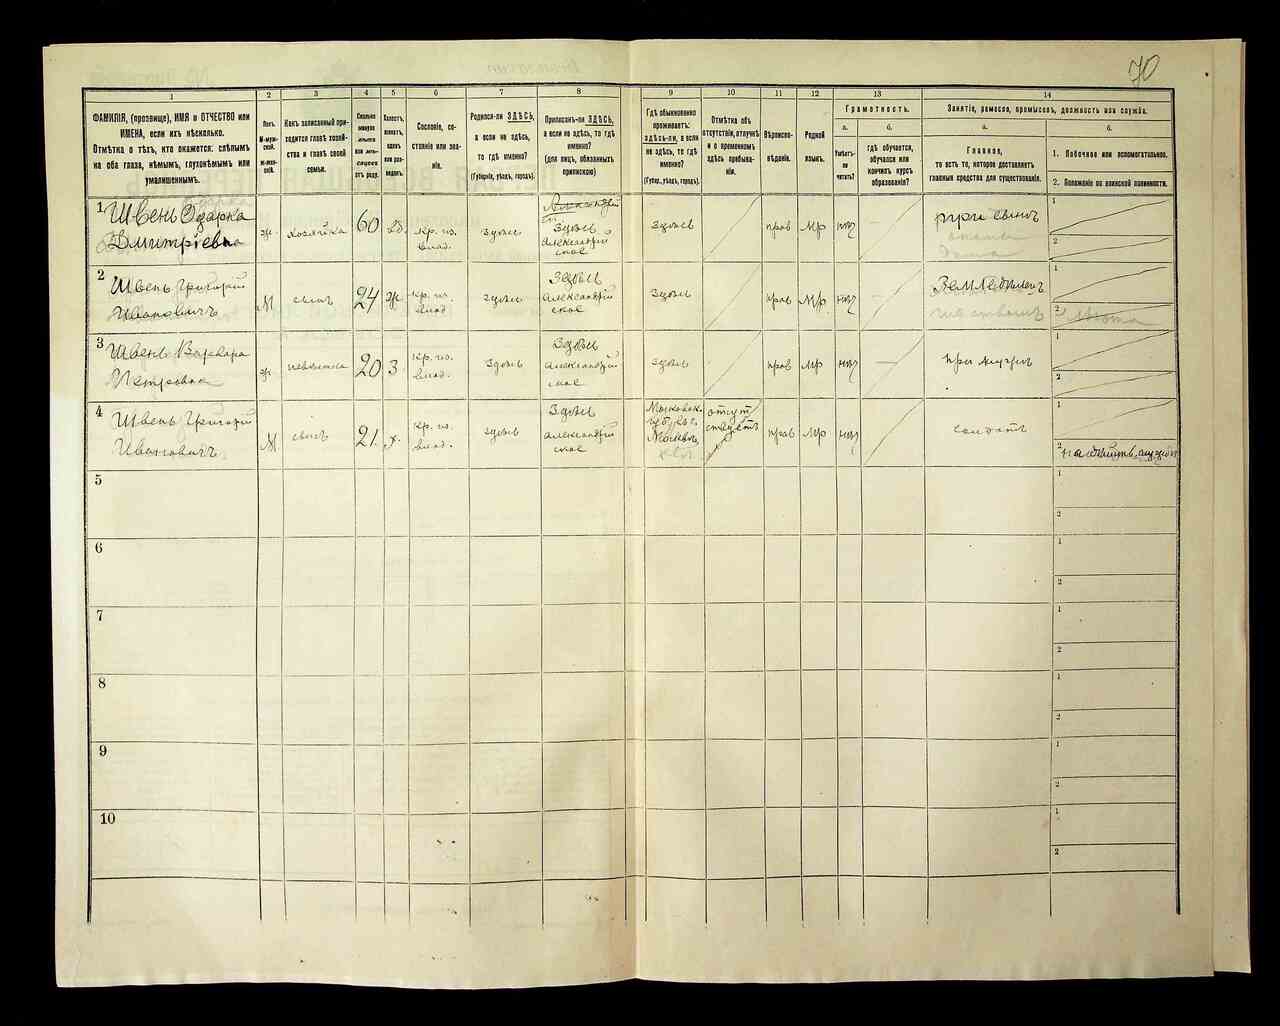 70
1 2 3 4 5 6 7 8 9 10 11 12 13 14
ФАМИЛІЯ, (прозвище), ИМЯ и ОТЧЕСТВО или
ИМЕНА, если ихъ нѣсколько.
Отмѣтка о тѣхъ, кто окажется: слѣпымъ
на оба глаза, нѣмымъ, глухонѣмымъ или
умалишеннымъ.
Полъ.
М-муж-
ской.
Ж-жен-
скій.
Какъ записанный при-
ходится главѣ хозяй-
ства и главѣ своей
семьи.
Сколько
минуло
лѣтъ
или мѣ-
сяцевъ
отъ роду.
Холостъ,
женатъ,
вдовъ
или раз-
веденъ.
Сословіе, со-
стояніе или зва-
ніе.
Родился-ли ЗДѢСЬ,
а если не здѣсь,
то гдѣ именно?
(Губернія, уѣздъ, городъ).
Приписанъ-ли ЗДѢСЬ,
а если не здѣсь, то гдѣ
именно?
(для лицъ, обязанныхъ
припискою)
Гдѣ обыкновенно
проживаетъ:
здѣсь-ли, а если
не здѣсь, то гдѣ
именно?
(Губер., уѣздъ, городъ).
Отмѣтка объ
отсутствіи, отлучкѣ
и о временномъ
здѣсь пребыва-
ніи.
Вѣроиспо-
вѣданіе.
Родной
языкъ.
Грамотность.
а.
Умѣетъ-
ли
читать?
б.
гдѣ обучается,
обучался или
кончилъ курсъ
образованія?
Занятіе, ремесло, промыселъ, должность или служба.
а.
Главное,
то есть то, которое доставляетъ
главныя средства для существованія.
б.
1. Побочное или вспомогательное.
2. Положеніе по воинской повинности.
1 Швень Одарка
Дмитріевна
ж. хозяйка 60 вд. кр. из.
влад.
здѣсь
здѣсь
александрій
ское
здѣсь
прав мр нѣт
при сынѣ
1
2
2 Швень Григорій
Ивановичъ
М сынъ 24 ж. кр. из.
влад.
здѣсь
здѣсь
александрій
ское
здѣсь
прав мр. нѣт
Земледѣлецъ
1
2 льгота
3 Швень Варвара
Петровна
ж. невѣстка 20 з. кр. из.
влад.
здѣсь
здѣсь
александрій
ское
здѣсь
прав мр нѣт
при мужѣ
1
2
4 Швень Григорій
Ивановичъ
М сынъ 21. х. кр. из.
влад.
здѣсь
здѣсь
александрій
ское
Москва
отсут
ствуетъ
прав мр нѣт
солдатъ
1
2
5 1
2
6 1
2
7 1
2
8 1
2
9 1
2
10 1
2